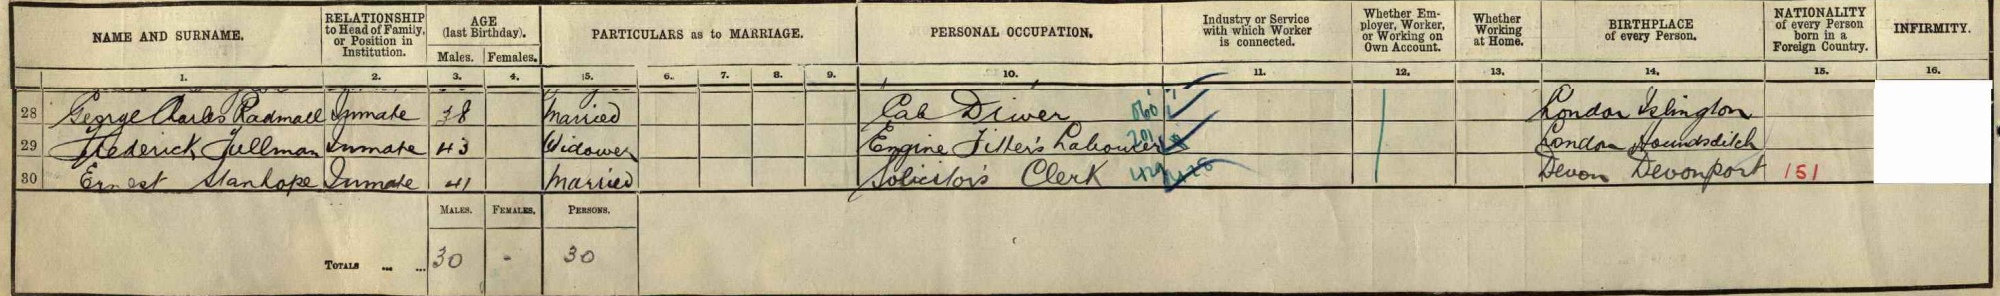 NAME AND SURNAME. RELATIONSHIP to Head of Family, or Position in Institution. AGE (last Birthday). Males. Females. PARTICULARS as to MARRIAGE. PERSONAL OCCUPATION. Industry or Service with which Worker is connected. Whether Employer, Worker, or Working on Own Account. Whether Working at Home. BIRTHPLACE of every Person. NATIONALITY of every Person born in a Foreign Country. INFIRMITY.
1. 2. 3. 4. 5. 6. 7. 8. 9. 10. 11. 12. 13. 14. 15. 16.
28 George Charles Radmall Inmate 38 Married Cab Driver London Islington
29 Frederick Tullman Inmate 43 Widower Engine Fitter's Labourer London Houndsditch
30 Ernest Stanhope Inmate 41 Married Solicitor's Clerk Devon Devonport 151
MALES. FEMALES. PERSONS.
TOTALS ... ... 30 - 30